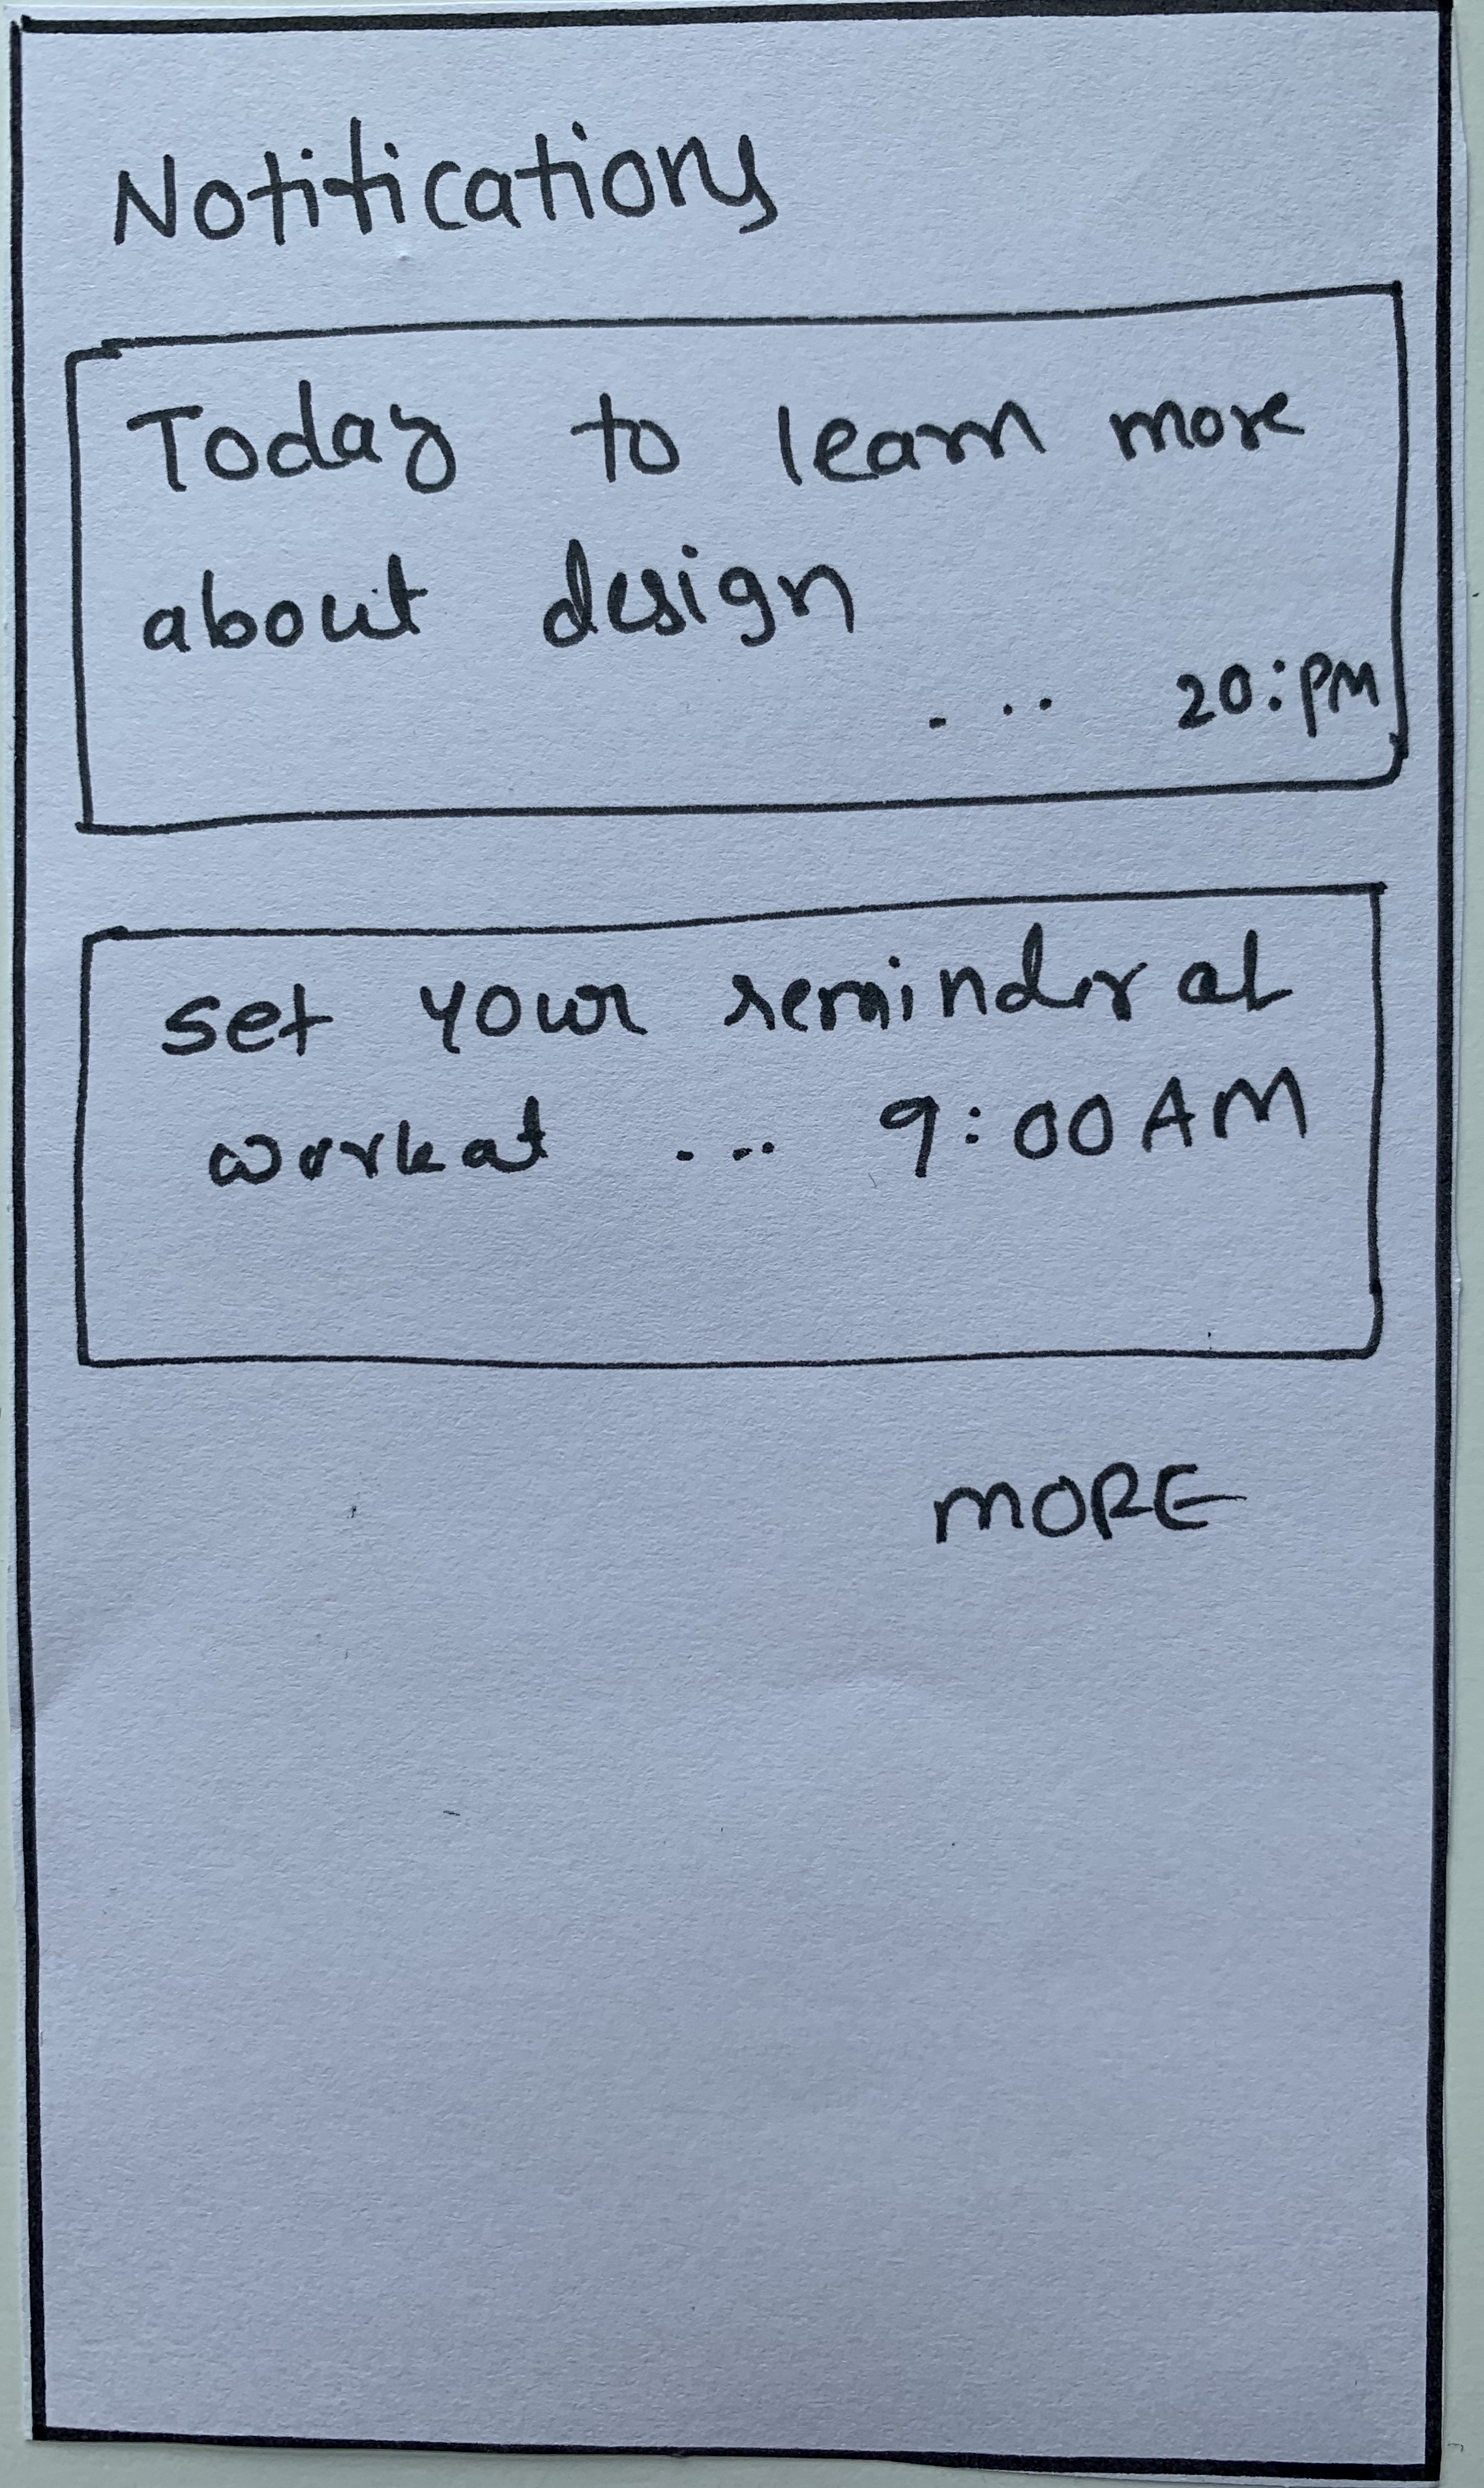 Notifications
Today to learn more
about design
... 20:PM
set your reminder at
work at ... 9:00 AM
MORE